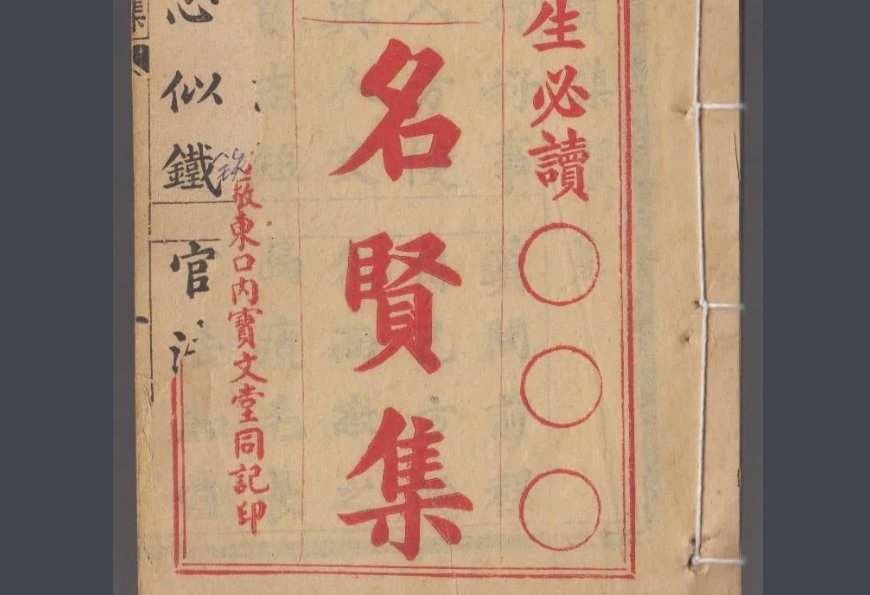 生必讀
名賢集
敬東口內寶文堂同記印
似鐵官
集